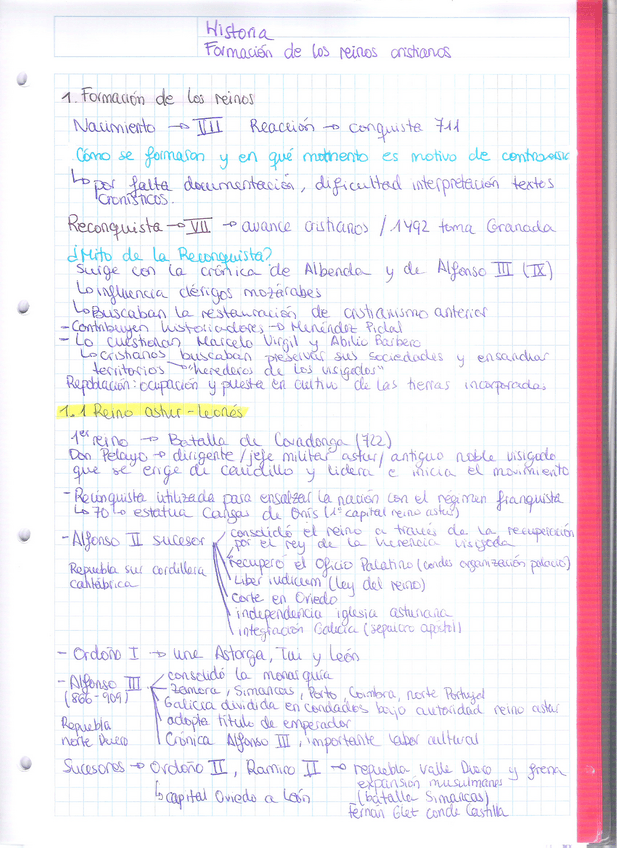 Historia
Formación de los reinos cristianos
1. Formación de los reinos
Nacimiento → VII Reacción → conquista 711
Cómo se forman y en qué momento es motivo de controversia
↳ por falta documentación, dificultad interpretación textos
cronísticos.
Reconquista → VII → avance cristianos / 1492 toma Granada
¿Mito de la Reconquista?
Surge con la crónica de Albenda y de Alfonso III (IX)
↳ influencia clérigos mozárabes
↳ Buscaban la restauración de cristianismo anterior
- Contribuyen historiadores → Menéndez Pidal
- Lo cuestionan Marcelo Virgil y Abilio Barbero
↳ cristianos buscaban preservar sus sociedades y ensanchar
territorios → "herederos de los visigodos"
Repoblación: ocupación y puesta en cultivo de las tierras incorporadas
1.1 Reino astur-leonés
1er reino → Batalla de Covadonga (722)
Don Pelayo → dirigente / jefe militar astur / antiguo noble visigodo
que se erige de caudillo y lidera e inicia el movimiento
- Reconquista utilizada para ensalzar la nación con el régimen franquista
↳ 70 ↳ estatua Cangas de Onís (1ª capital reino astur)
- Alfonso II sucesor
consolidó el reino a través de la recuperación
por el rey de la herencia visigoda
Repuebla sur cordillera
cantábrica
recuperó el Oficio Palatino (condes organización palacio)
Liber Iudicium (ley del reino)
corte en Oviedo
independencia iglesia asturiana
integración Galicia (sepulcro apostol)
- Ordoño I → une Astorga, Tui y León
- Alfonso III
(866-909)
Repuebla
norte Duero
consolidó la monarquía
Zamora, Simancas, Porto, Coimbra, norte Portugal
Galicia dividida en condados bajo autoridad reino astur
adopta título de emperador
Crónica Alfonso III, importante labor cultural
Sucesores → Ordoño II, Ramiro II → repuebla Valle Duero y frena
expansión musulmanes
↳ capital Oviedo a León
(batalla Simancas)
Fernán Glez conde Castilla